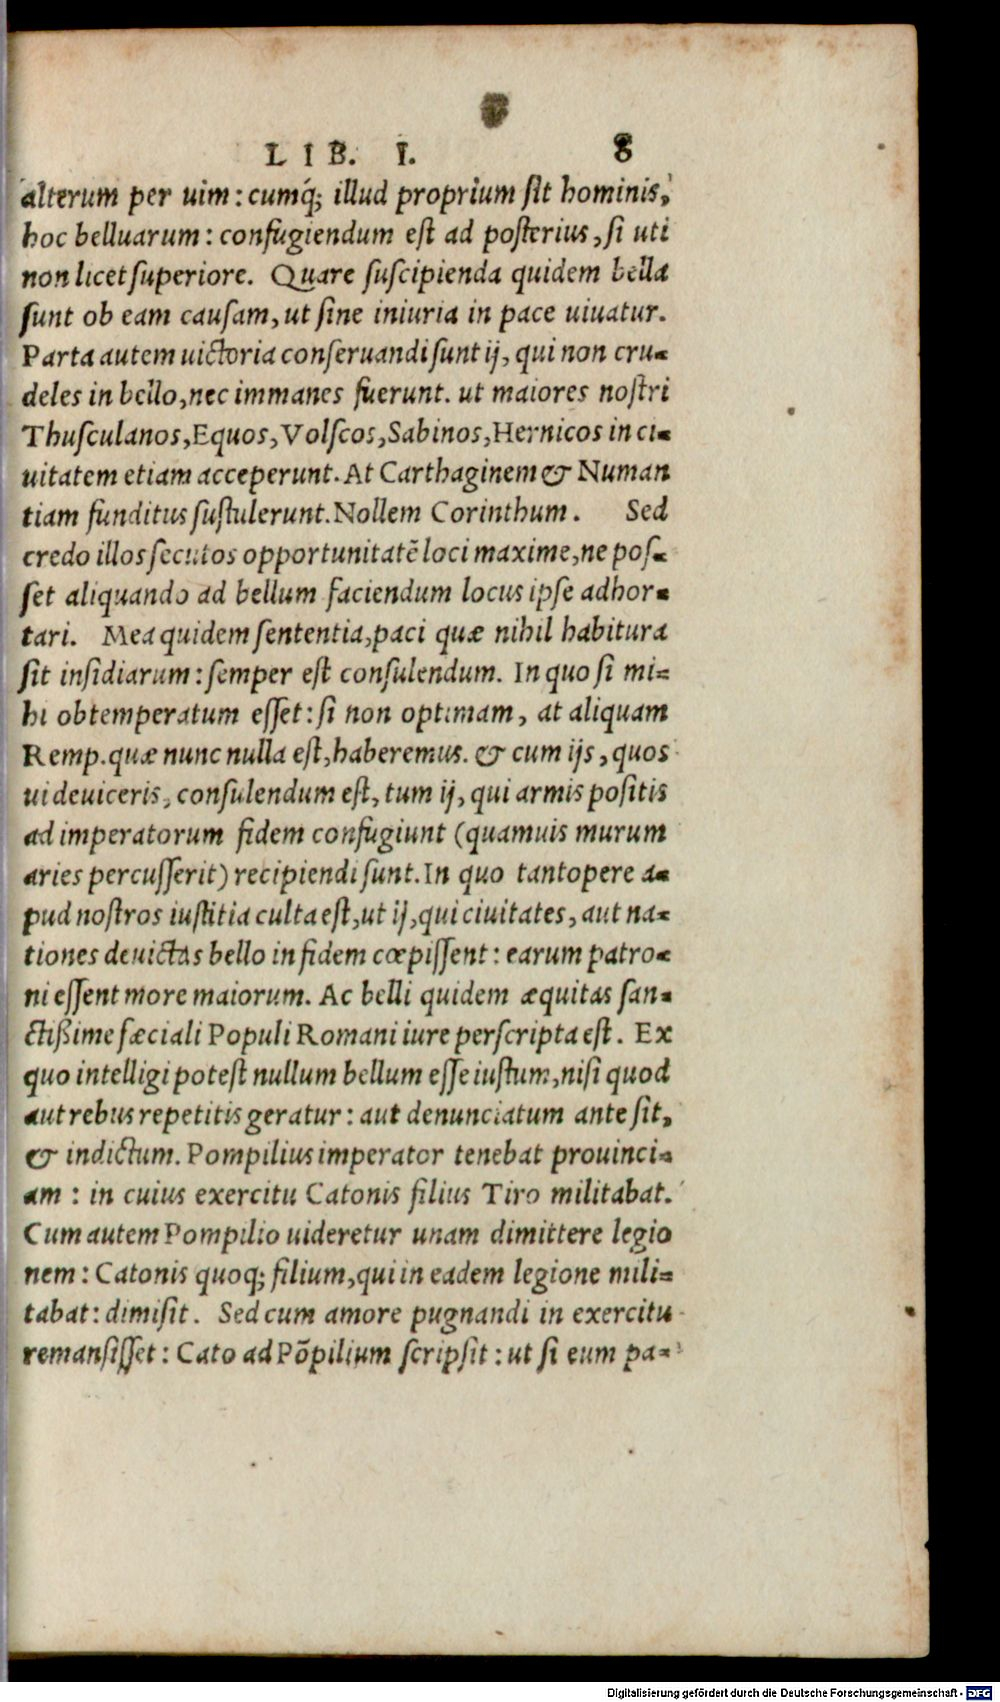 LIB. I. 8
alterum per uim: cumq́; illud proprium ſit hominis,
hoc belluarum: confugiendum eſt ad poſterius, ſi uti
non licet ſuperiore. Quare ſuſcipienda quidem bella
ſunt ob eam cauſam, ut ſine iniuria in pace uiuatur.
Parta autem uictoria conſeruandi ſunt ij, qui non cru-
deles in bello, nec immanes fuerunt. ut maiores noſtri
Thuſculanos, Equos, Volſcos, Sabinos, Hernicos in ci-
uitatem etiam acceperunt. At Carthaginem & Numan
tiam funditus ſuſtulerunt. Nollem Corinthum. Sed
credo illos ſecutos opportunitatẽ loci maxime, ne poſ-
ſet aliquando ad bellum faciendum locus ipſe adhor-
tari. Mea quidem ſententia, paci quæ nihil habitura
ſit inſidiarum: ſemper eſt conſulendum. In quo ſi mi-
hi obtemperatum eſſet: ſi non optimam, at aliquam
Remp. quæ nunc nulla eſt, haberemus. & cum ijs, quos
ui deuiceris, conſulendum eſt, tum ij, qui armis poſitis
ad imperatorum fidem confugiunt (quamuis murum
aries percuſſerit) recipiendi ſunt. In quo tantopere a-
pud noſtros iuſtitia culta eſt, ut ij, qui ciuitates, aut na-
tiones deuictas bello in fidem cœpiſſent: earum patro-
ni eſſent more maiorum. Ac belli quidem æquitas ſan-
ctißime fæciali Populi Romani iure perſcripta eſt. Ex
quo intelligi poteſt nullum bellum eſſe iuſtum, niſi quod
aut rebus repetitis geratur: aut denunciatum ante ſit,
& indictum. Pompilius imperator tenebat prouinci-
am: in cuius exercitu Catonis filius Tiro militabat.
Cum autem Pompilio uideretur unam dimittere legio
nem: Catonis quoq; filium, qui in eadem legione mili-
tabat: dimiſit. Sed cum amore pugnandi in exercitu
remanſiſſet: Cato ad Põpilium ſcripſit: ut ſi eum pa-
Digitalisierung gefördert durch die Deutsche Forschungsgemeinschaft - DFG